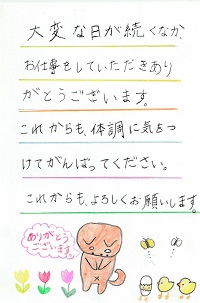 大変な日が続くなか、
お仕事をしていただきあり
がとうございます。
これからも、体調に気をつ
けてがんばってください。
これからも、よろしくお願いします。
ありがとう
ございます。